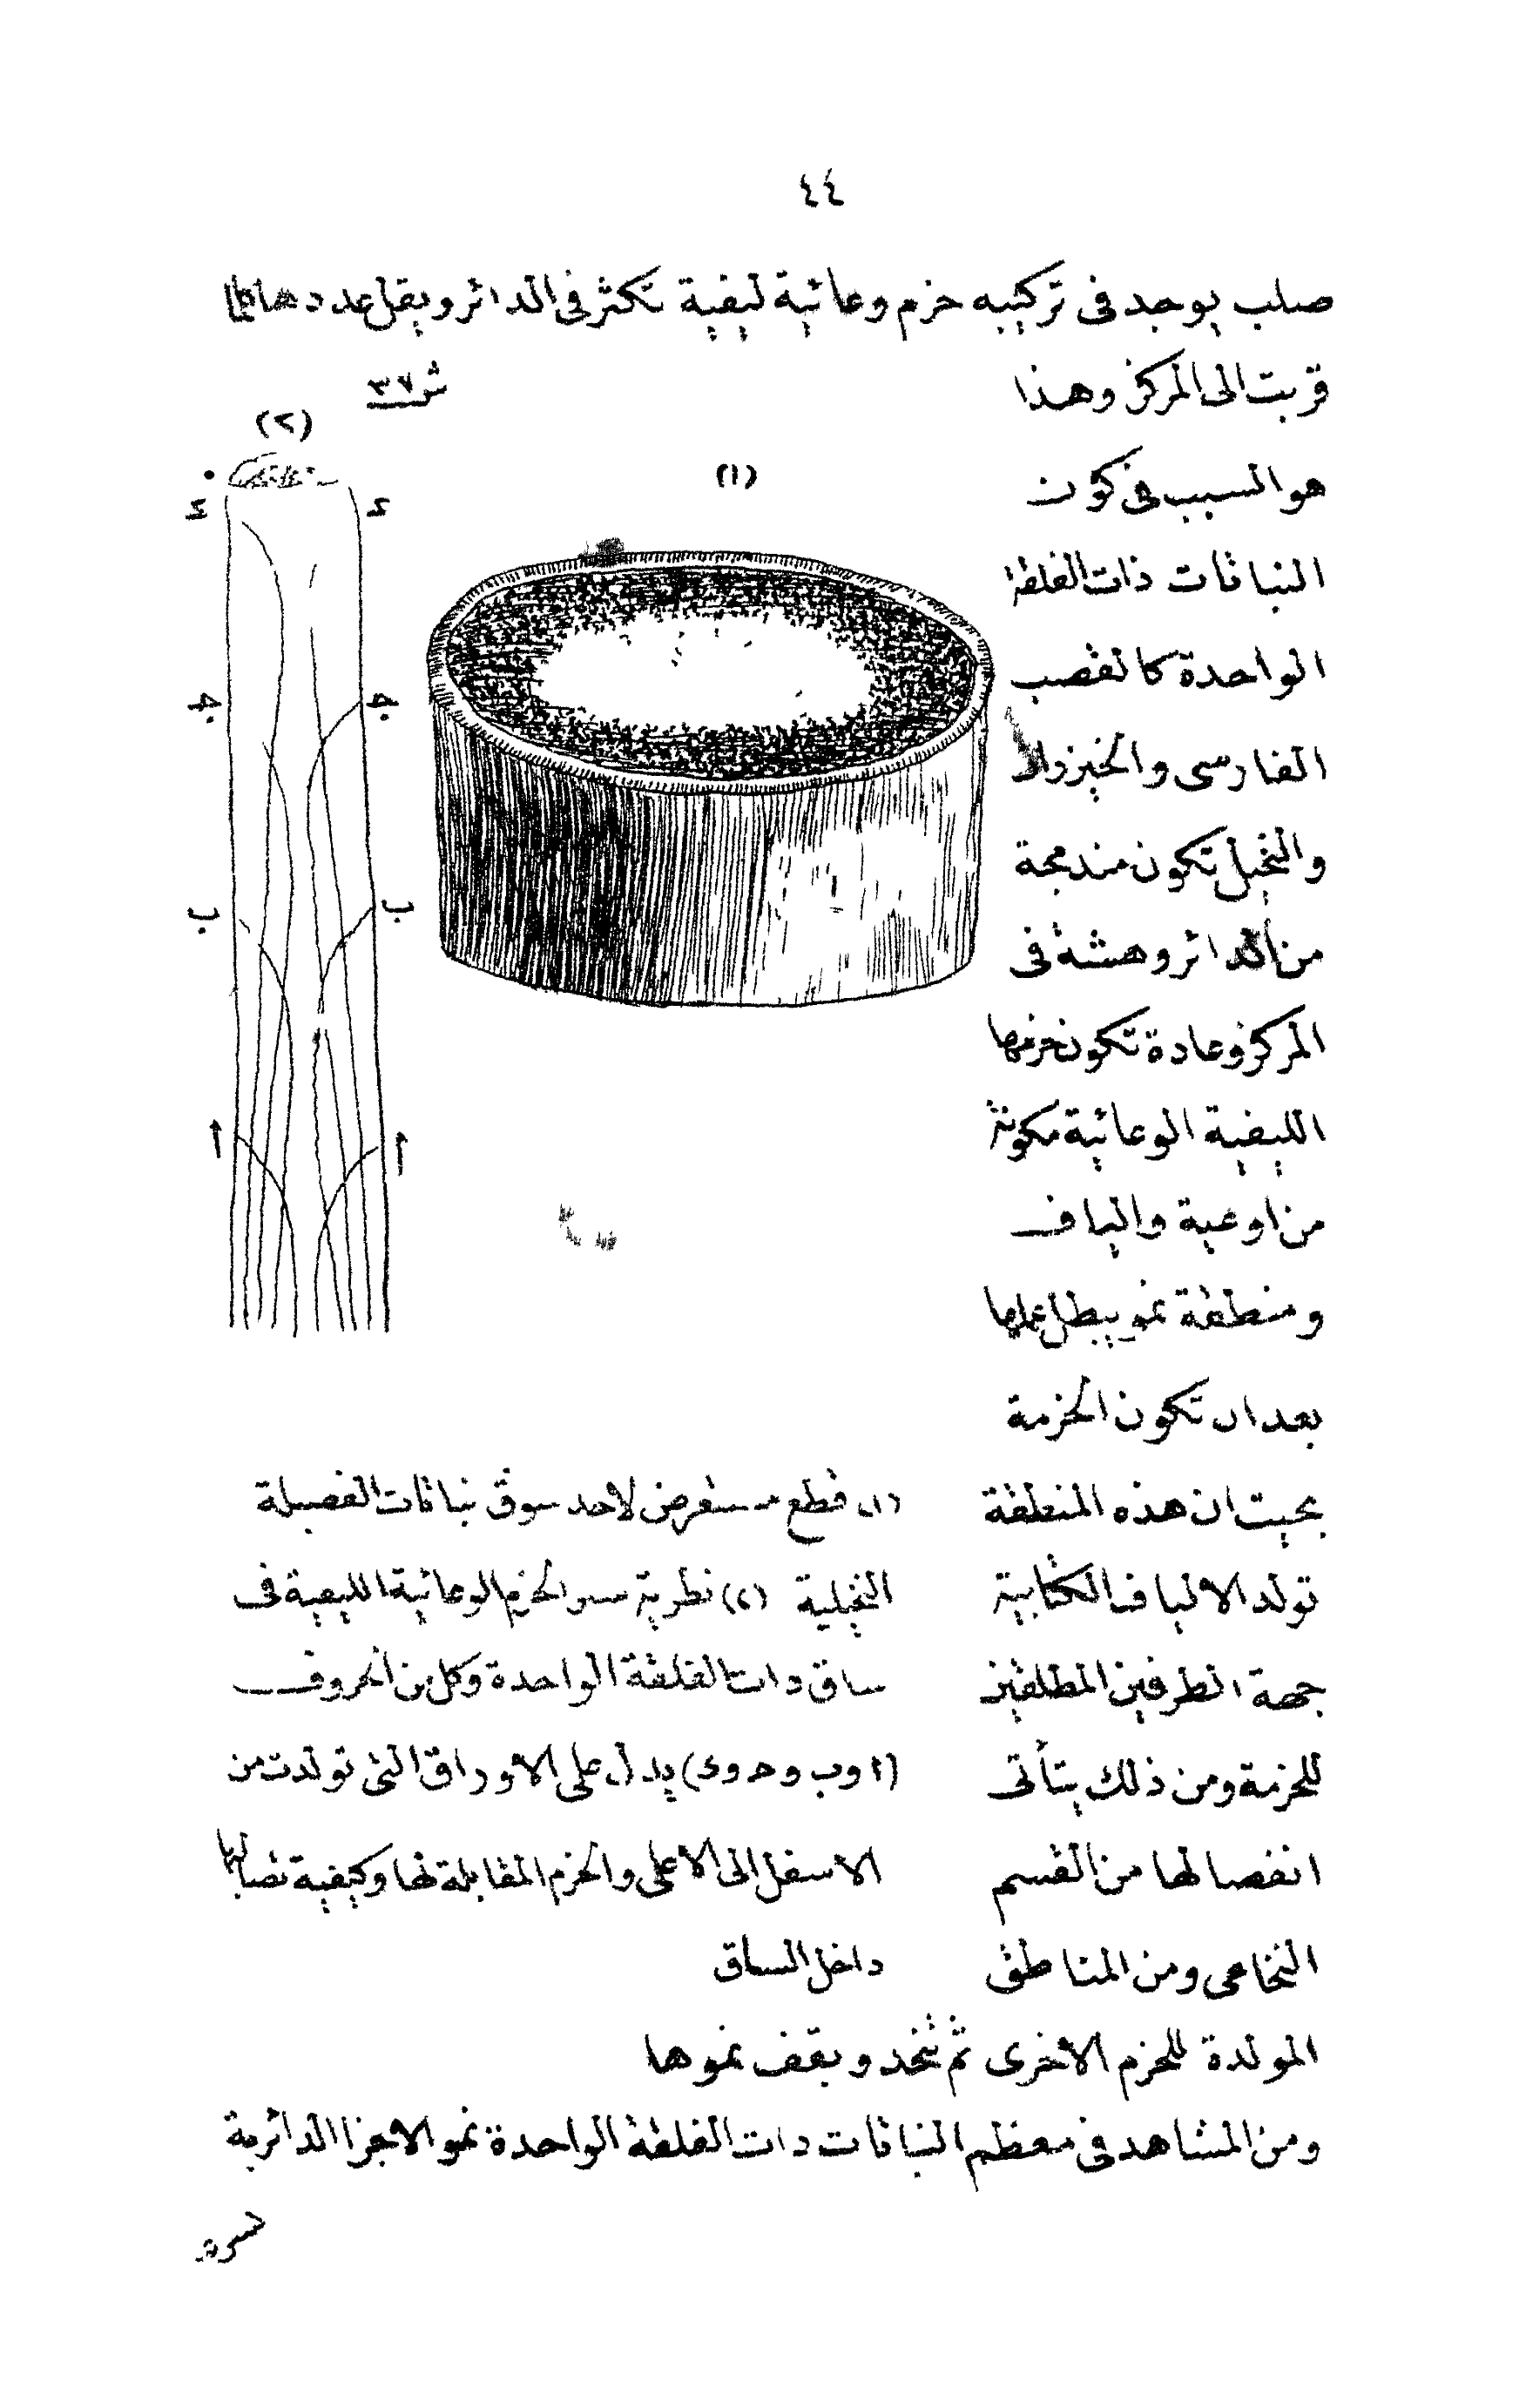 ٤٤
صلب يوجد فى تركيبه حزم وعائية ليفية تكثر فى الدائر ويقل عددها كلما
قربت الى المركز وهذا
هو السبب فى كون
النباتات ذات الفلقة
الواحدة كالقصب
الفارسى والخيزران
والنخيل تكون مندمجة
من الدائر وهشة فى
المركز وعادة تكون حزمها
الليفية الوعائية مكونة
من اوعية والياف
ومنطقة نمو يبطل عملها
بعد ان تكون الحزمة
بحيث ان هذه المنطقة
تولد الالياف الكتابية
جهة الطرفين المطلقين
للحزمة ومن ذلك يتأتى
انفصالها من القسم
النخاعى ومن المناطق
المولدة للحزم الاخرى ثم تتخد ويقف نموها
ومن المشاهد فى معظم النباتات ذات الفلقة الواحدة نمو الاجزا الدائرية
ش ٣٧
(٢)
(١)
د د
ج ج
ب ب
أ أ
(١) قطع مستعرض لاحد سوق نباتات الفصيلة
النخيلية (٢) نظرية سير الحزم الوعائية الليفية فى
ساق ذات الفلقة الواحدة وكل من الحروف
(ا وب وحـ ود) يدل على الاوراق التى تولدت من
الاسفل الى الاعلى والحزم المقابلة لها وكيفية تصالبها
داخل الساق